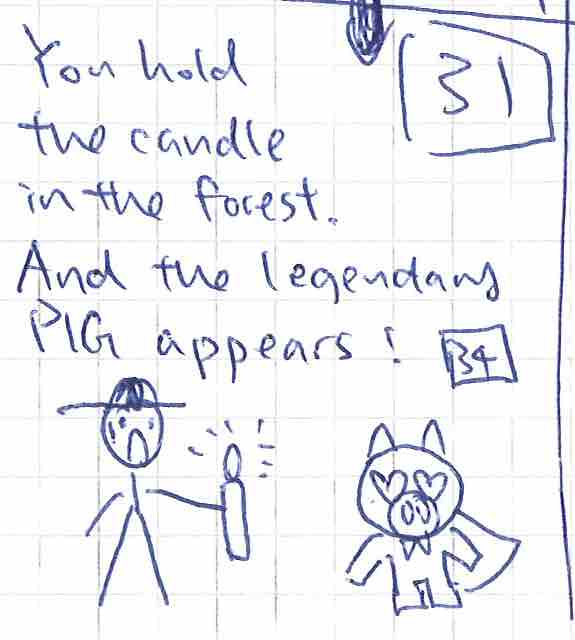 31
You hold
the candle
in the forest.
And the legendary
PIG appears! 34